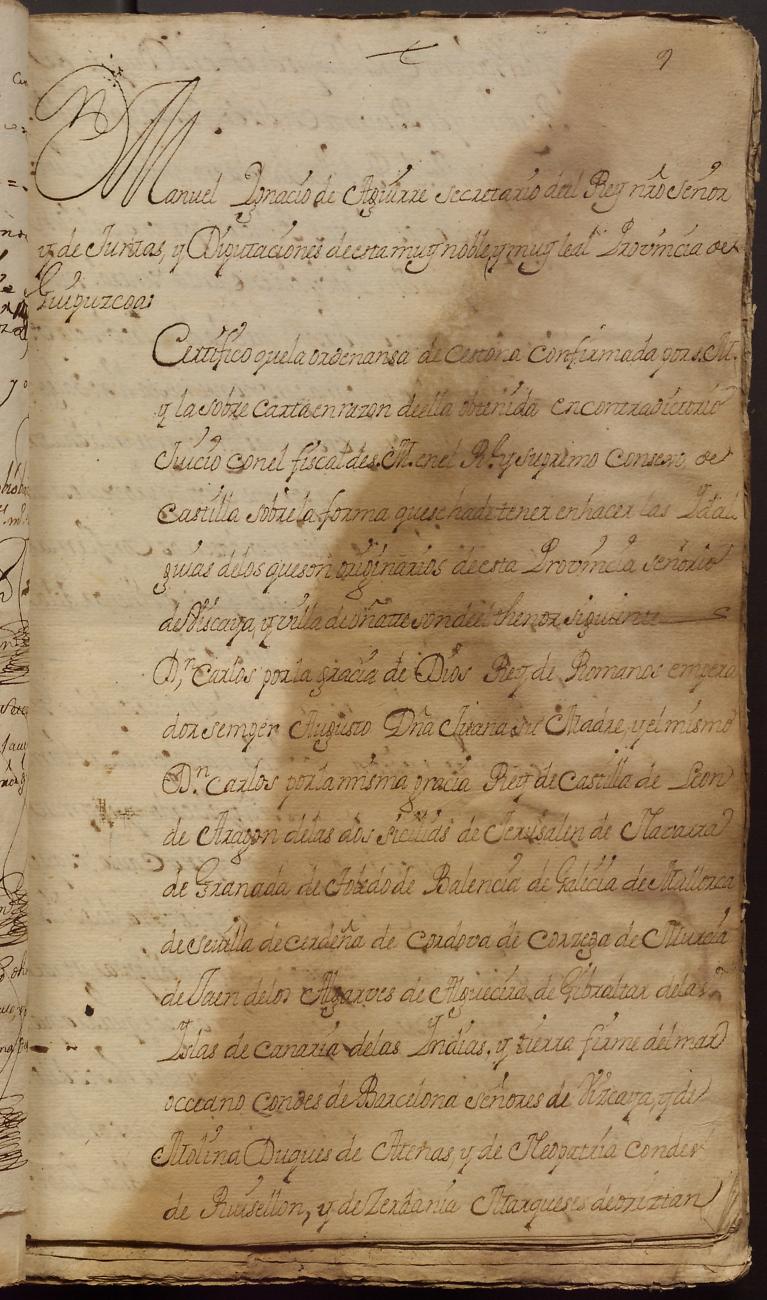 9
Manuel Ygnacio de Aguirre secretario del Rey nro señor
y de Juntas, y Diputaciones de esta muy noble, y muy leal Provincia de
Guipuzcoa:
Certifico que la ordenansa de cestona confirmada por s. M.
y la sobre carta en razon de ella obtenida en contradictorio
Juicio con el fiscal de s. M. en el Rl. y supremo Consejo, de
Castilla sobre la forma que se ha de tener en hacer las Ydal
guias de los que son originarios de esta Provincia señorio
de Viscaya, y villa de oñatte son del thenor siguiente
Dn. Carlos por la gracia de Dios Rey de Romanos empera
dor semper Augusto Dña Juana su Madre, y el mismo
Dn. Carlos por la misma gracia Rey de Castilla de Leon
de Aragon de las dos sicilias de Jerusalen de Navarra
de Granada de Toledo de Balencia de Galicia de Mallorca
de sevilla de cerdeña de cordova de corzega de Murcia
de Jaen de los Algarves de Algecira de Gibraltar de las
Yslas de canaria de las Yndias, y tierra firme del mar
occeano Condes de Barcelona señores de Vizcaya, y de
Molina Duques de Atenas, y de Neopatria condes
de Ruisellon, y de Zerdania Marqueses de oriztan